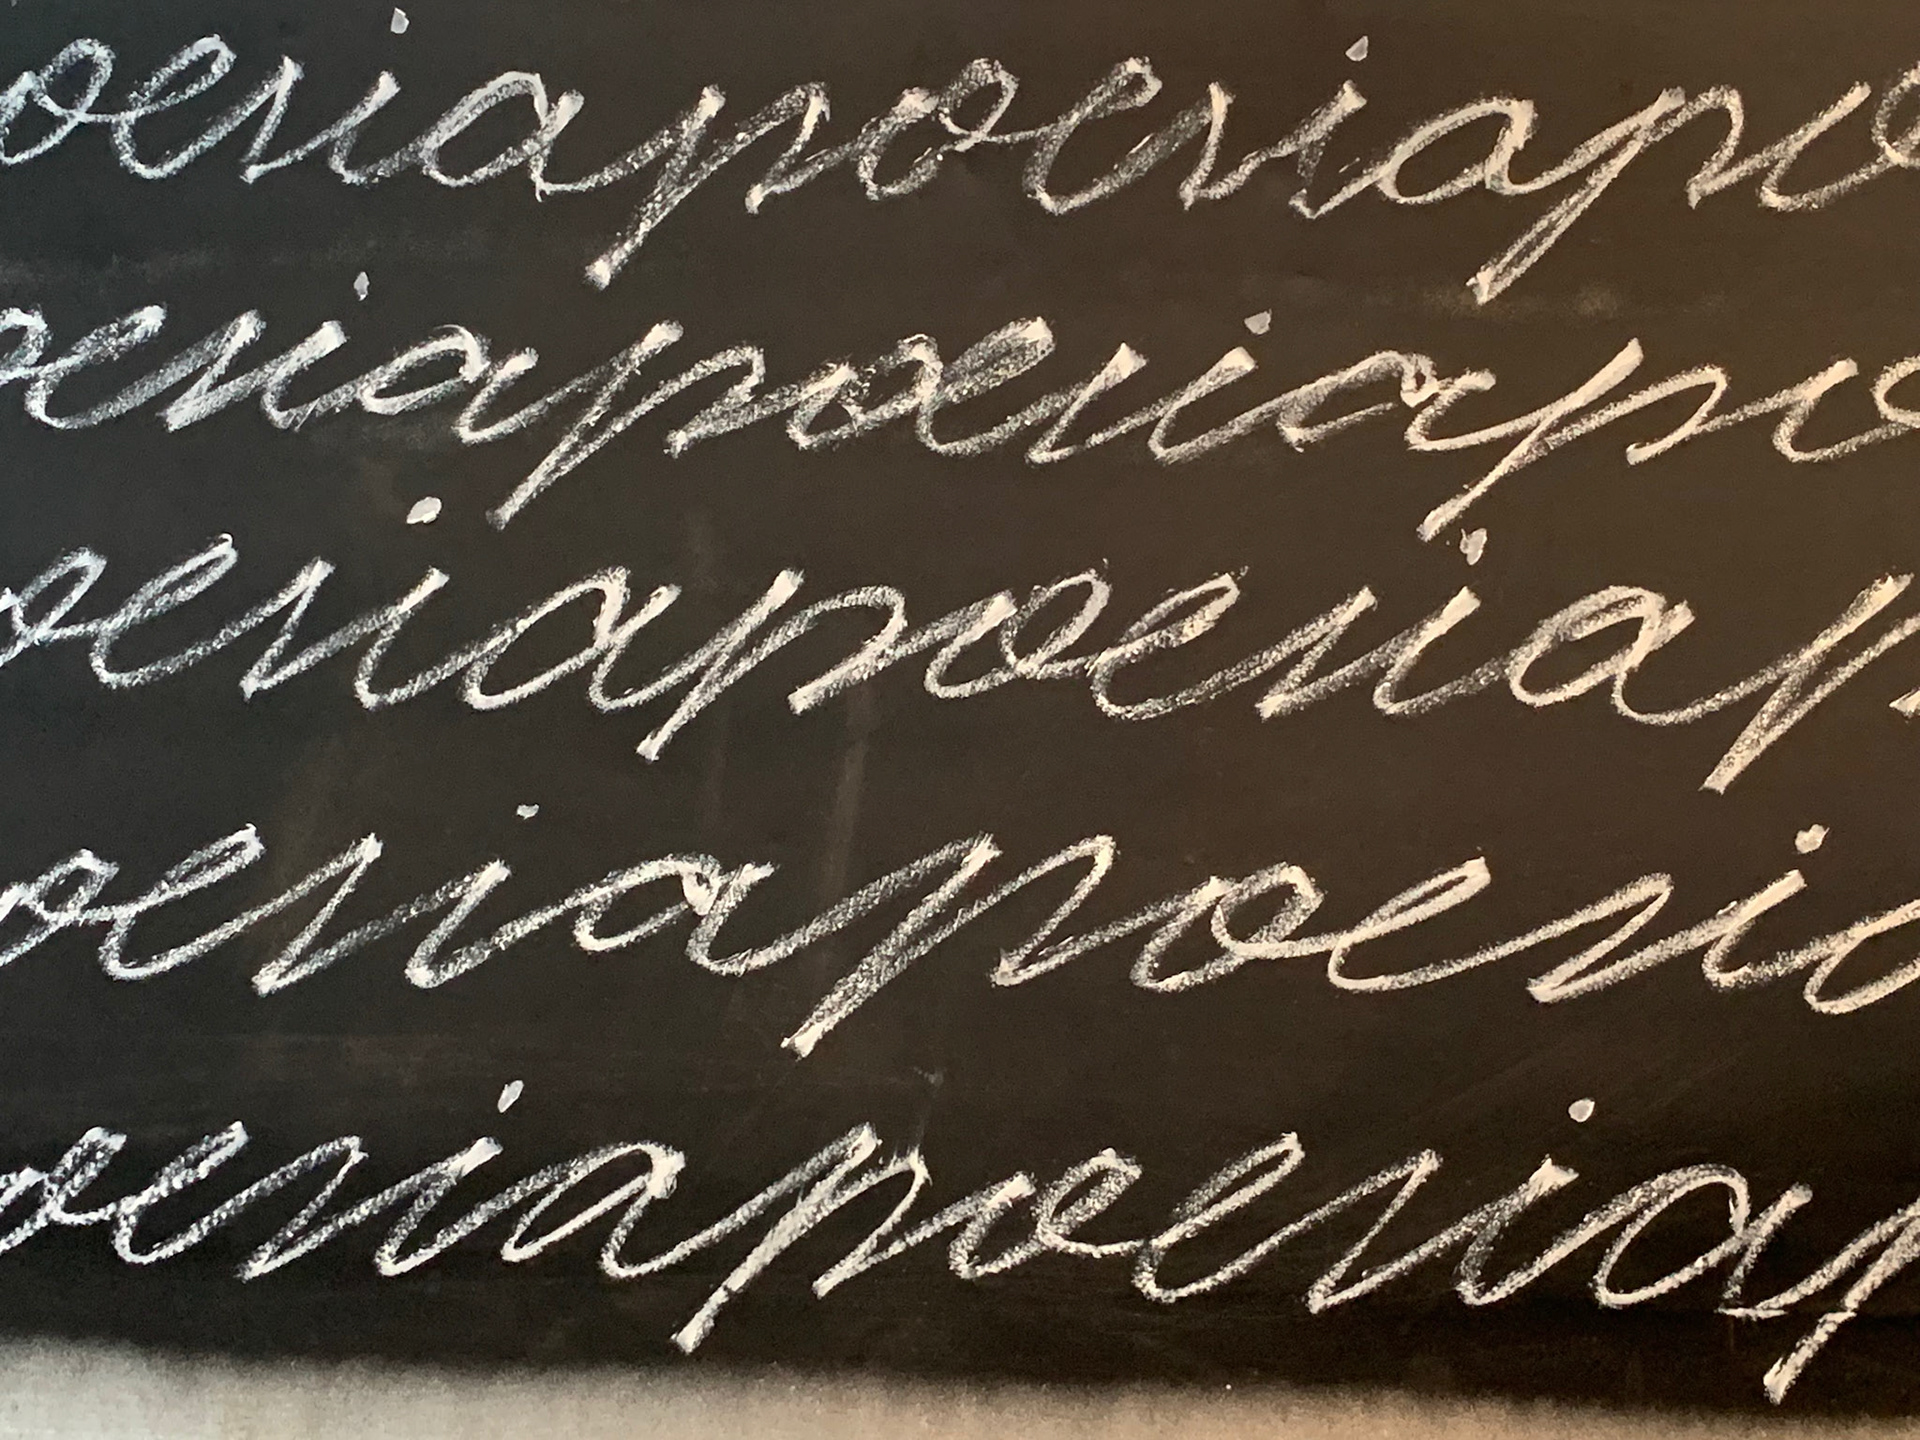 oesiapoesiapo
oesiapoesiapo
oesiapoesiap
oesiapoesia
oesiapoesiap